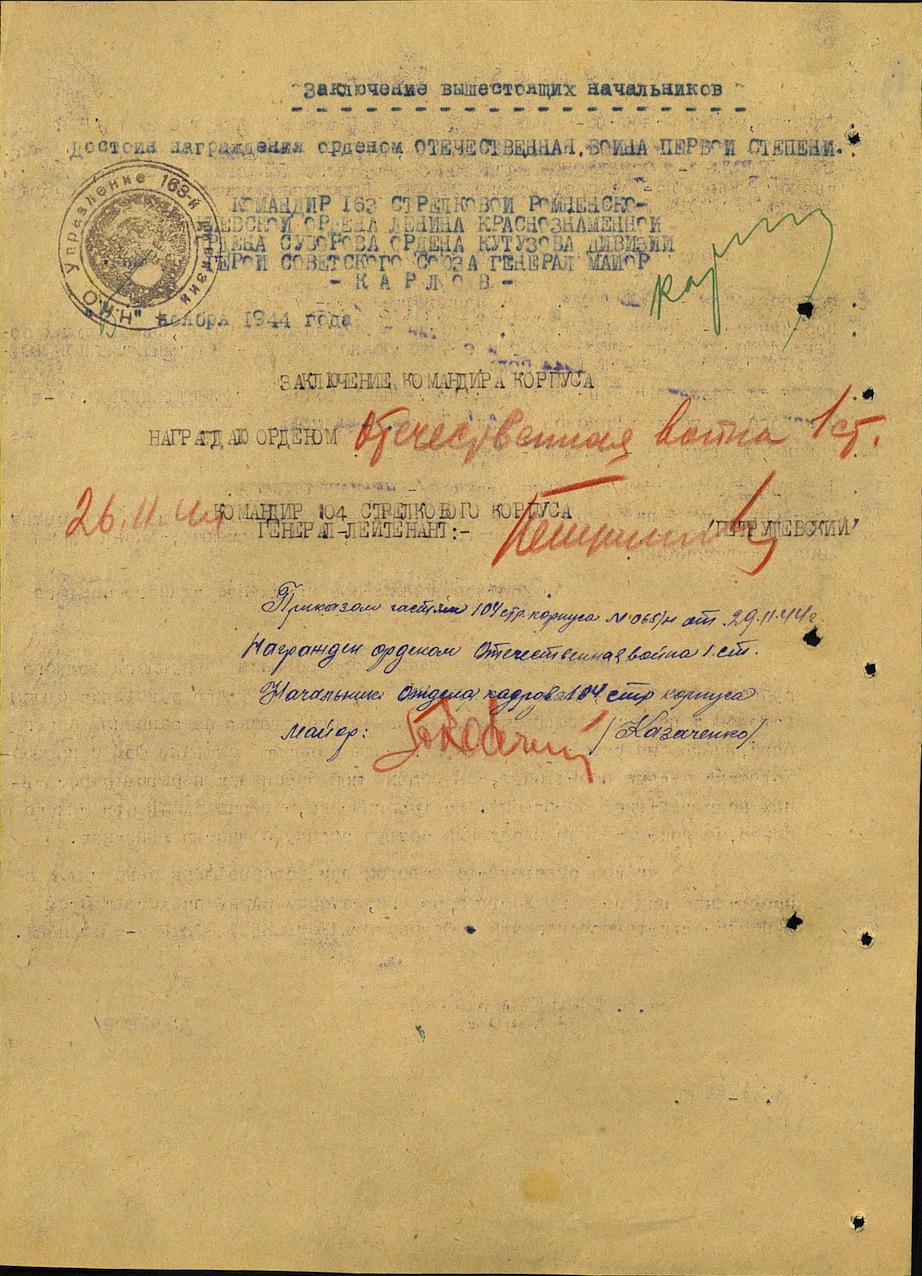 Заключение вышестоящих начальников
Достоин награждения орденом ОТЕЧЕСТВЕННАЯ ВОЙНА ПЕРВОЙ СТЕПЕНИ.
Управление 163-й
дивизии
Н.К.О
КОМАНДИР 163 СТРЕЛКОВОЙ РОМНЕНСКО-
ИЕВСКОЙ ОРДЕНА ЛЕНИНА КРАСНОЗНАМЕННОЙ
ДЕНА СУВОРОВА ОРДЕНА КУТУЗОВА ДИВИЗИИ
ГЕРОЙ СОВЕТСКОГО СОЮЗА ГЕНЕРАЛ МАЙОР
- К А Р Л О В -
ноября 1944 года
ЗАКЛЮЧЕНИЕ КОМАНДИРА КОРПУСА
НАГРАЖДАЮ ОРДЕНОМ Отечественная война 1 ст.
26.11.44
КОМАНДИР 104 СТРЕЛКОВОГО КОРПУСА
ГЕНЕРАЛ-ЛЕЙТЕНАНТ:- /ПЕТРУШЕВСКИЙ/
Приказом частям 104 стр. корпуса № 065/н от 29.11.44 г
Награжден орденом Отечественная война 1 ст.
Начальник отдела кадров 104 стр корпуса
майор: /Казаченко/